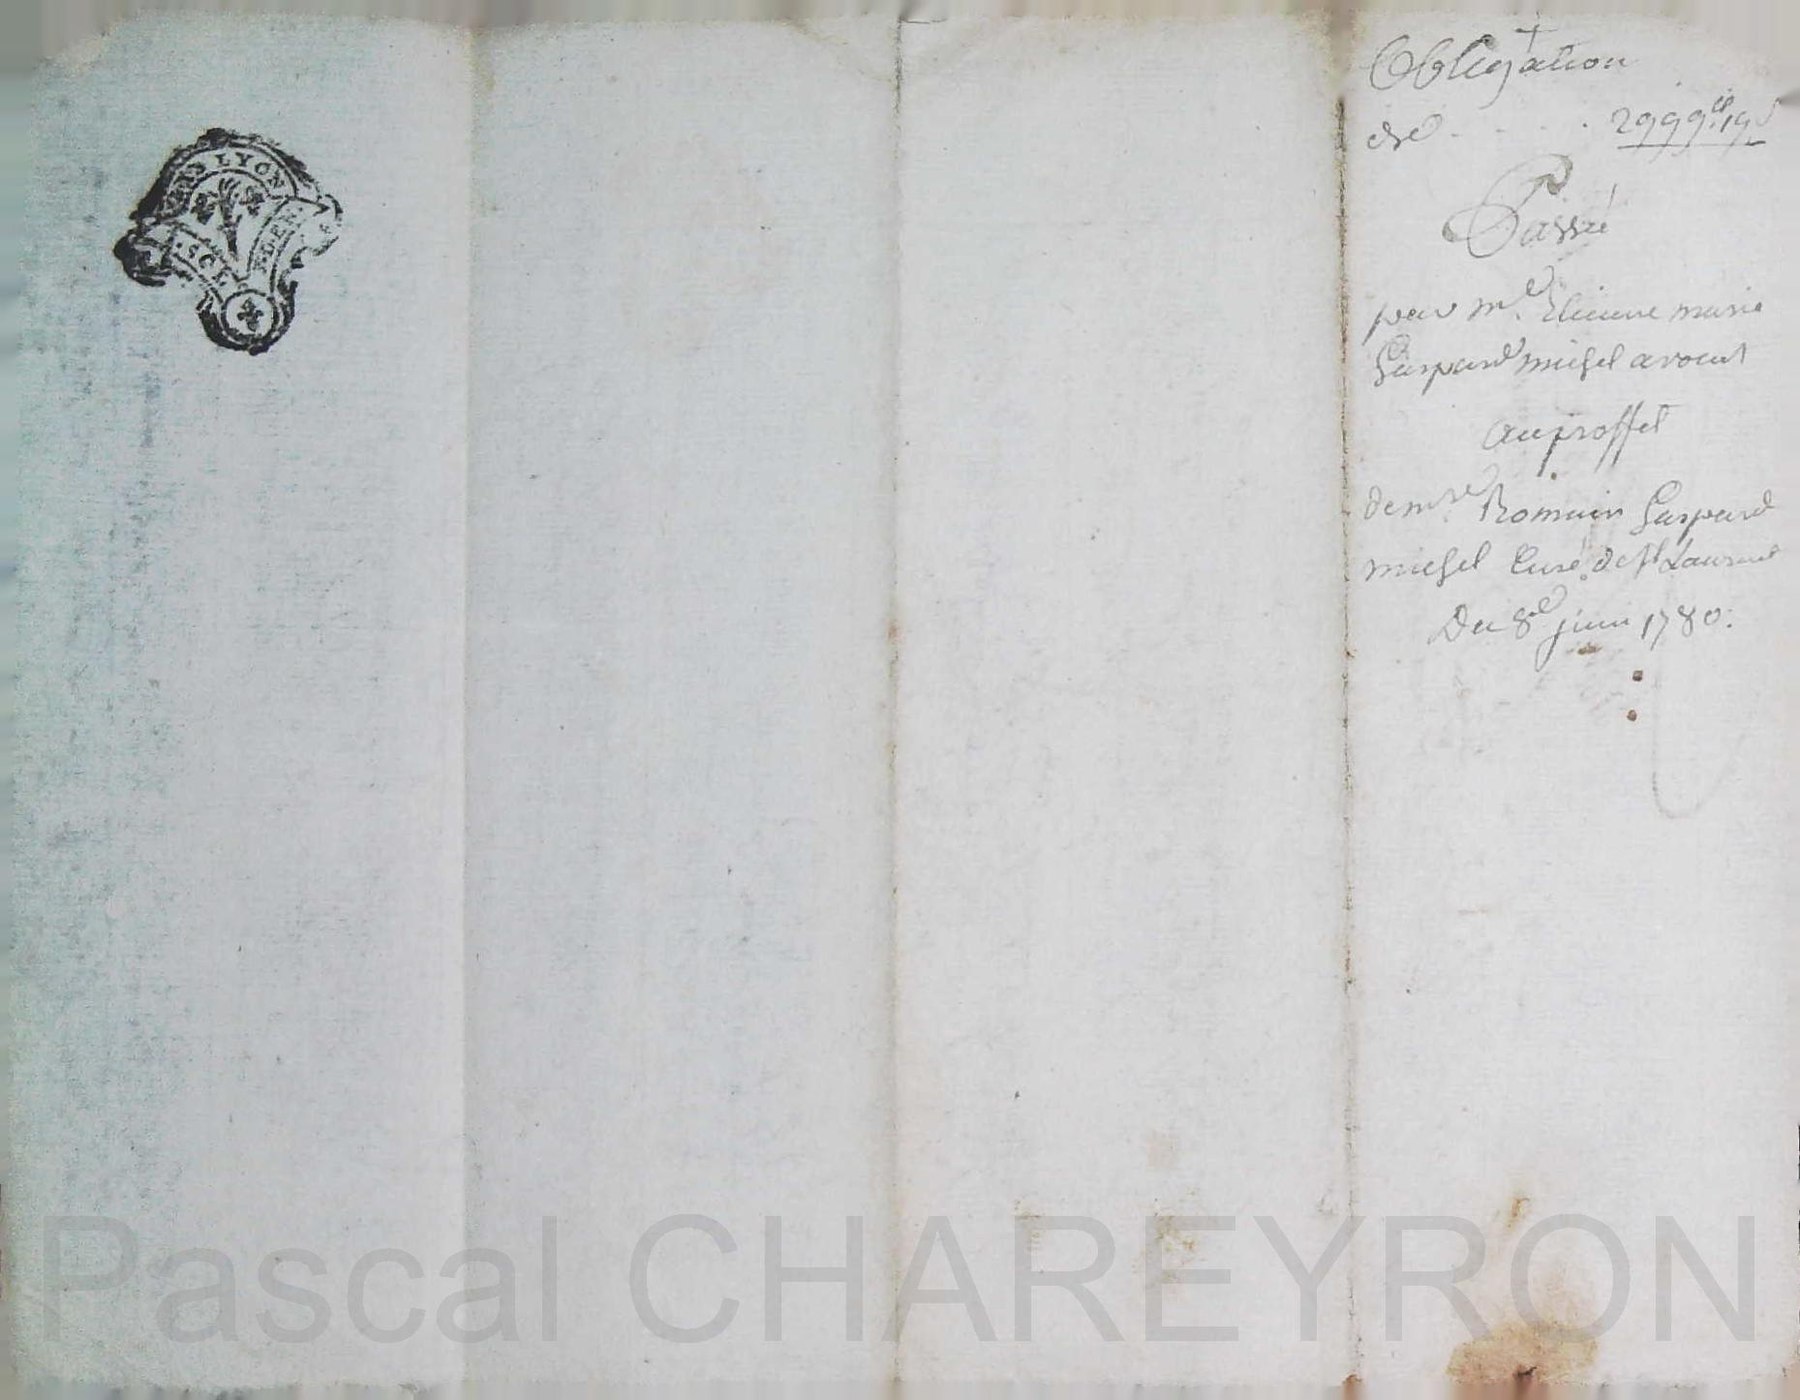 LYON
Obligation
de . . . . 2999# 19s
Passée
par me. Etienne marie
Gaspard michel avocat
au proffet
de mre. Romain Gaspard
michel Curé de st Laurent
Du 8e juin 1780.
Pascal CHAREYRON